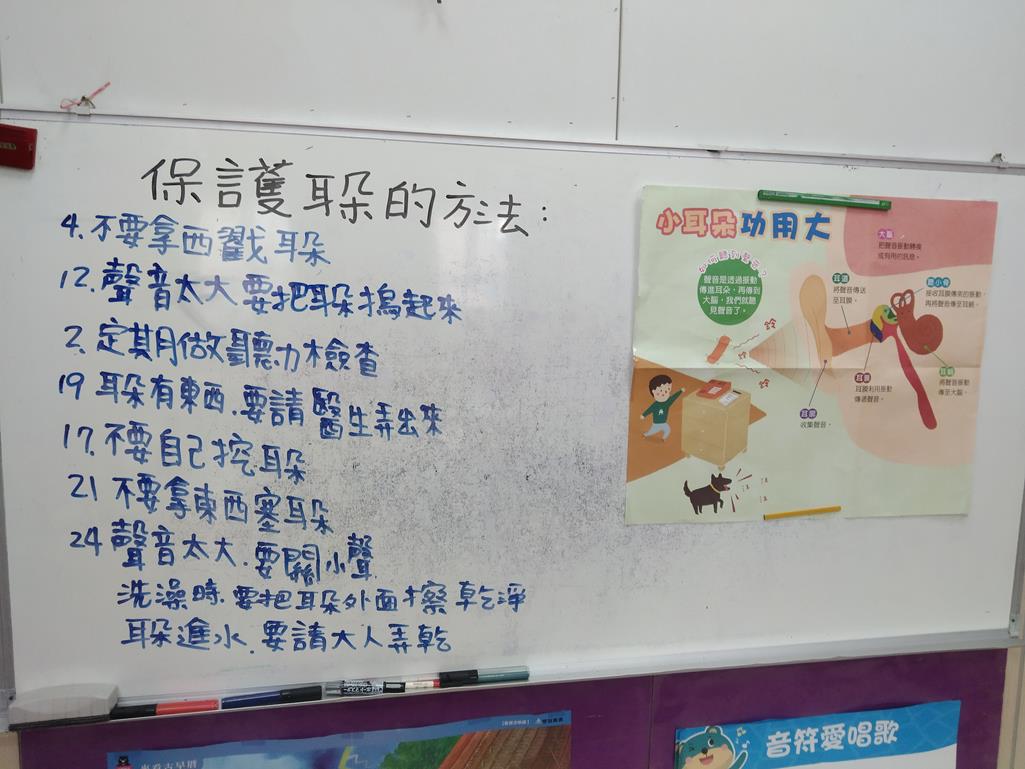 保護耳朵的方法：
4.不要拿西戳耳朵
12.聲音太大要把耳朵摀起來
2.定期做聽力檢查
19 耳朵有東西.要請醫生弄出來
17.不要自己挖耳朵
21 不要拿東西塞耳朵
24 聲音太大.要關小聲
洗澡時.要把耳朵外面擦乾淨
耳朵進水.要請大人弄乾
小耳朵功用大
如何聽到聲音？
聲音是透過振動
傳進耳朵，再傳到
大腦，我們就聽
見聲音了。
大腦
把聲音振動轉換
成有用的訊息。
耳道
將聲音傳送
至耳膜。
聽小骨
接收耳膜傳來的振動，
再將聲音傳至耳蝸。
耳膜
耳膜利用振動
傳遞聲音。
耳蝸
將聲音振動
傳至大腦。
耳廓
收集聲音。
鈴
鈴
鈴
汪
汪
汪
汪
音符愛唱歌